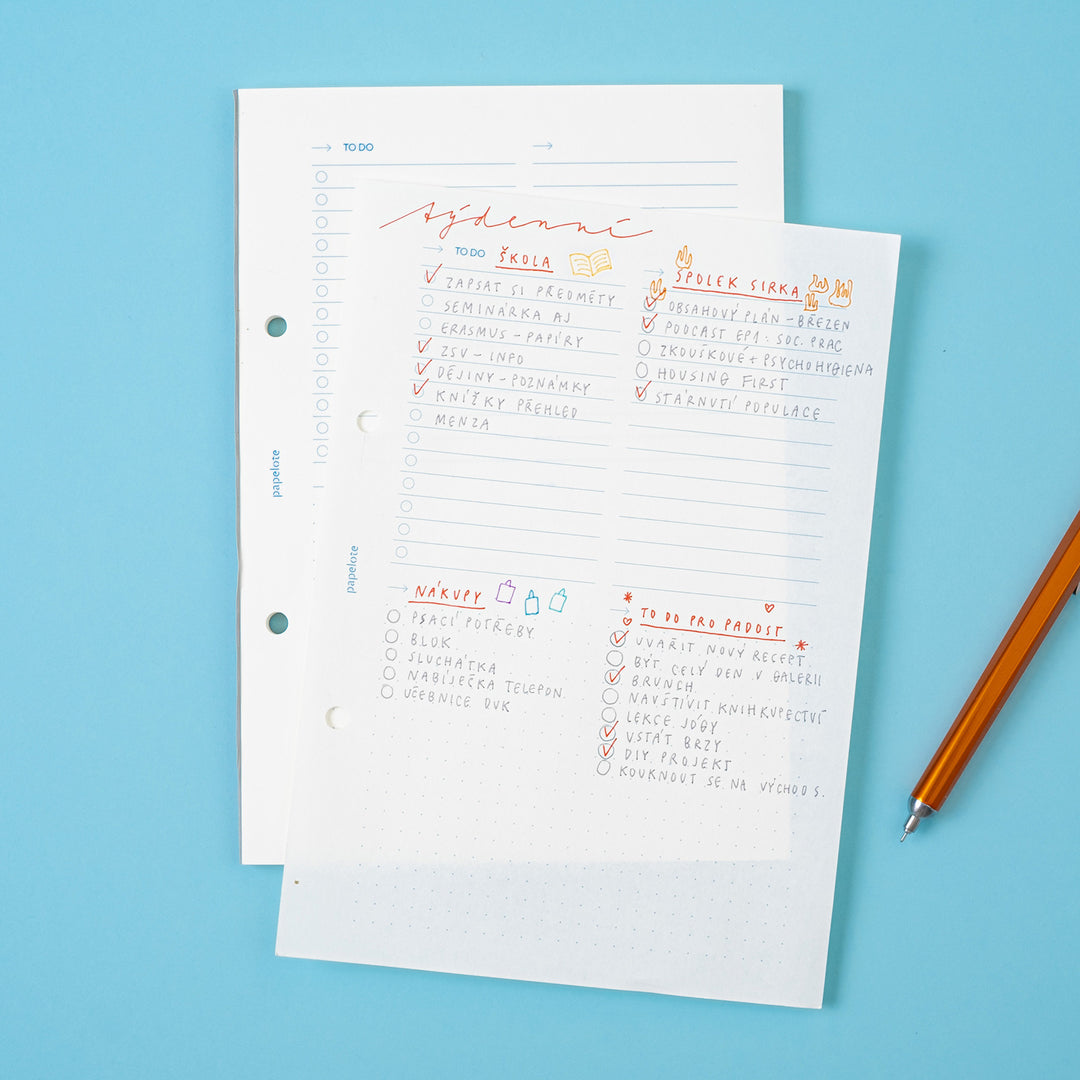 TO DO
papelote
týdenní
TO DO ŠKOLA
ZAPSAT SI PŘEDMĚTY
SEMINÁRKA AJ
ERASMUS - PAPÍRY
ZSV - INFO
DĚJINY - POZNÁMKY
KNÍŽKY PŘEHLED
MENZA
SPOLEK SIRKA
OBSAHOVÝ PLÁN - BŘEZEN
PODCAST EP1: SOC. PRAC
ZKOUŠKOVÉ + PSYCHOHYGIENA
HOUSING FIRST
STÁRNUTÍ POPULACE
papelote
NÁKUPY
PSACÍ POTŘEBY
BLOK
SLUCHÁTKA
NABÍJEČKA TELEFON
UČEBNICE DVK
TO DO PRO RADOST
UVAŘIT NOVÝ RECEPT
BÝT CELÝ DEN V GALERII
BRUNCH
NAVŠTÍVIT KNIHKUPECTVÍ
LEKCE JÓGY
VSTÁT BRZY
DIY PROJEKT
KOUKNOUT SE NA VÝCHOD S.